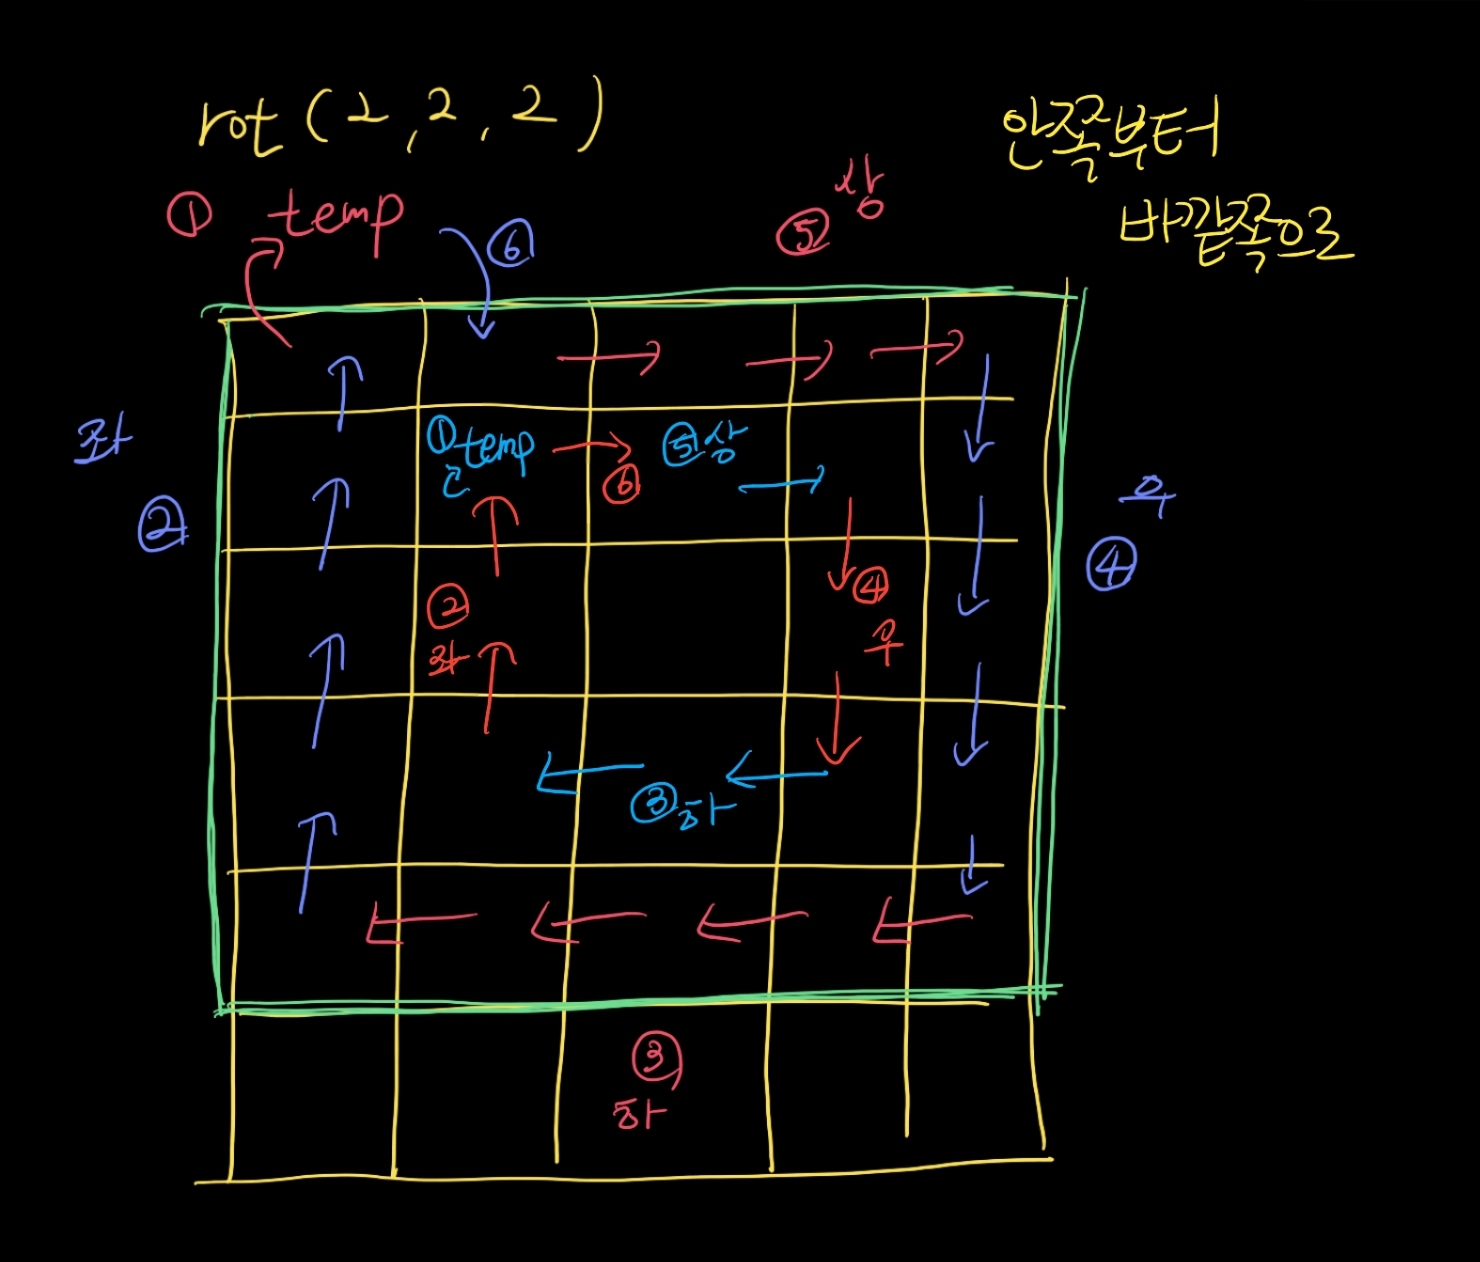 rot(2,2,2)
안쪽부터
바깥쪽으로
① temp
⑥
⑤ 상
좌
②
① temp
⑥
⑤ 상
우
④
②
좌
④
우
③ 하
③
하